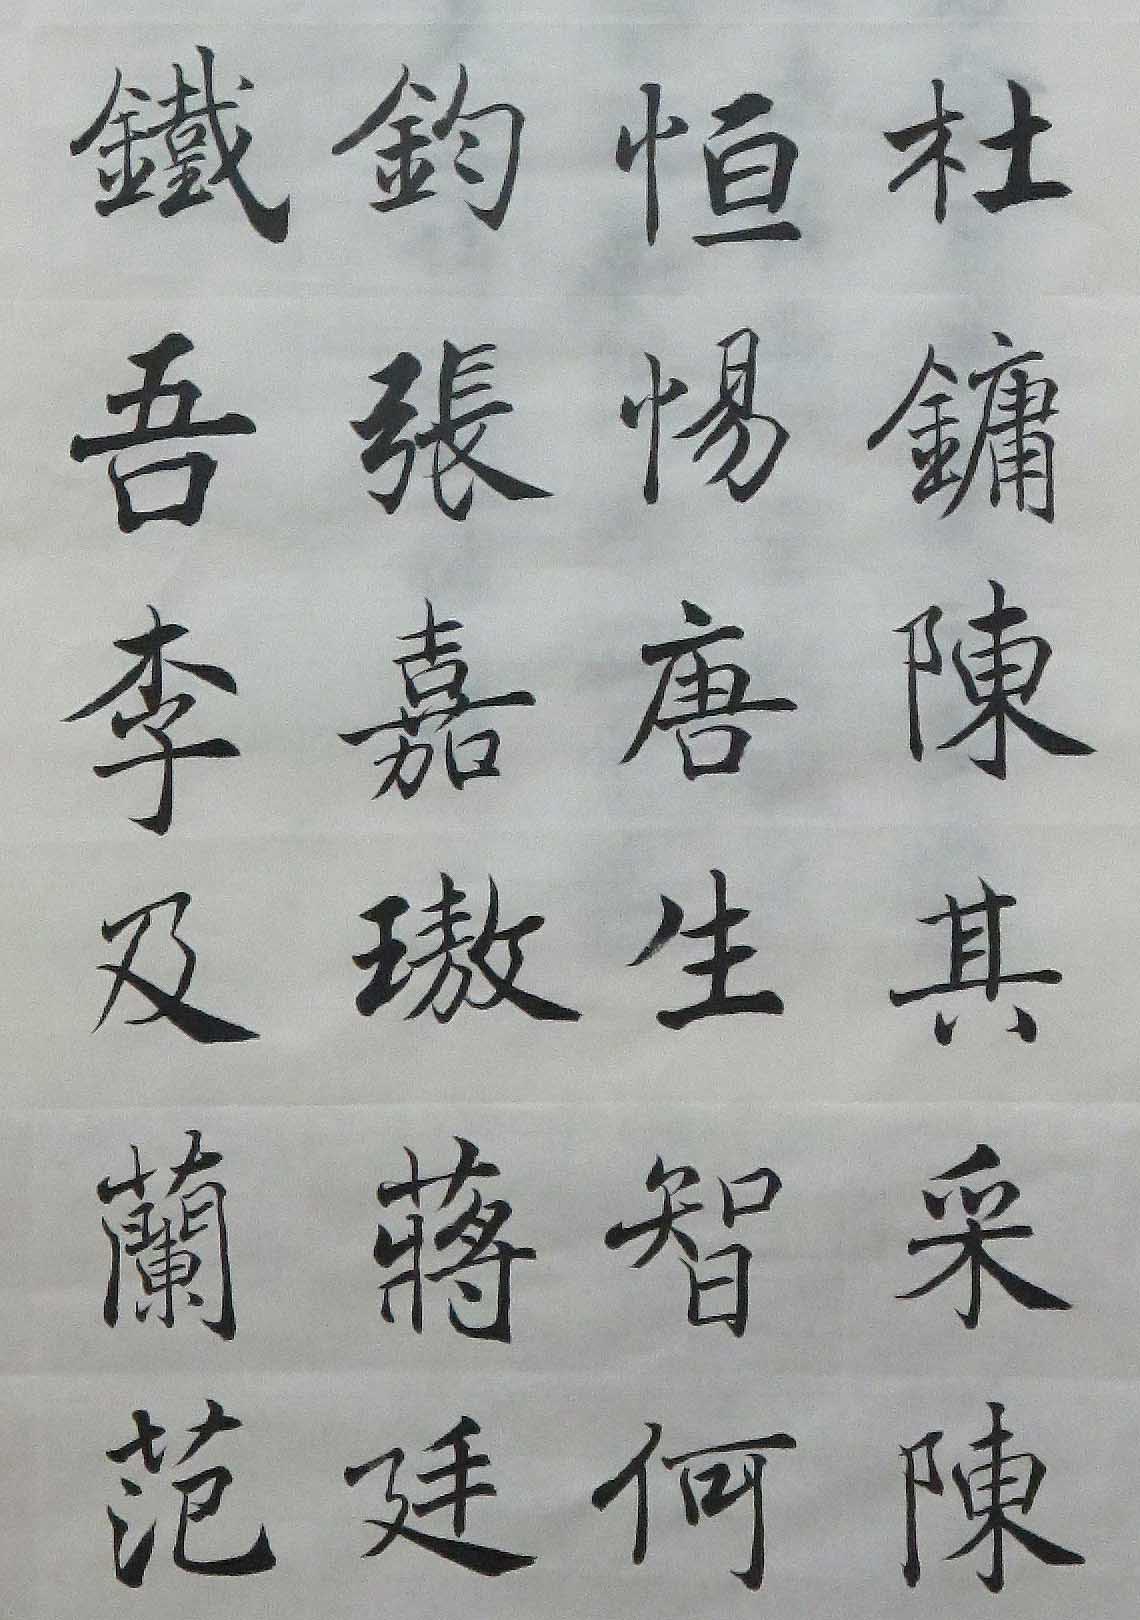 杜鏞陳其采陳
恒惕唐生智何
鈞張嘉璈蔣廷
鐵吾李及蘭范